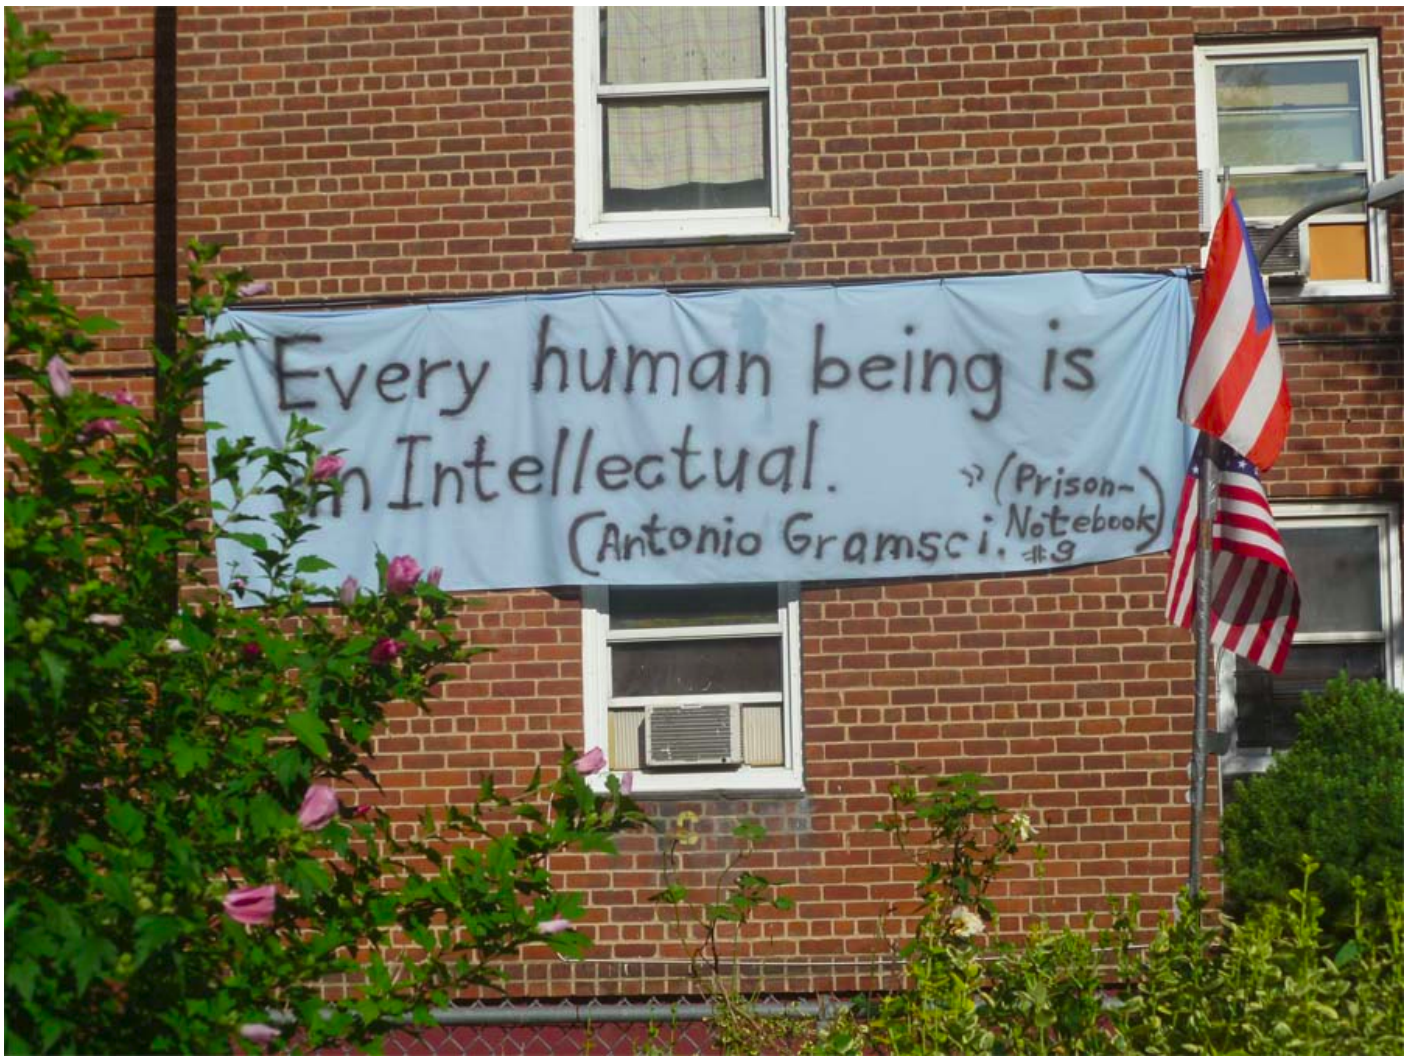 Every human being is
an Intellectual.
" (Prison-
(Antonio Gramsci. Notebook)
#9